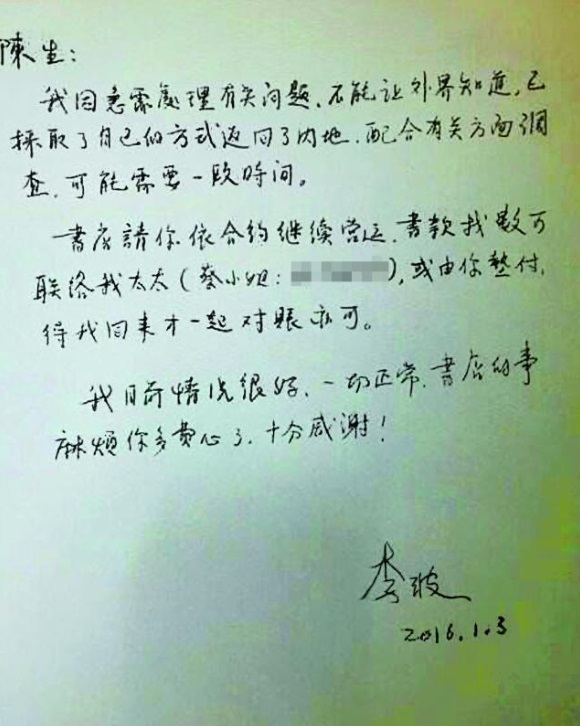 陳生：
我因急需處理有关问题，不能让外界知道，已
採取了自己的方式返回了内地，配合有关方面調
查，可能需要一段时间。
書店請你依合約继续営运，書款找數可
联络我太太（蔡小姐：），或由你墊付，
待我回来才一起对賬亦可。
我目前情况很好，一切正常，書店的事
麻煩你多費心了，十分感谢！
李波
2016.1.3